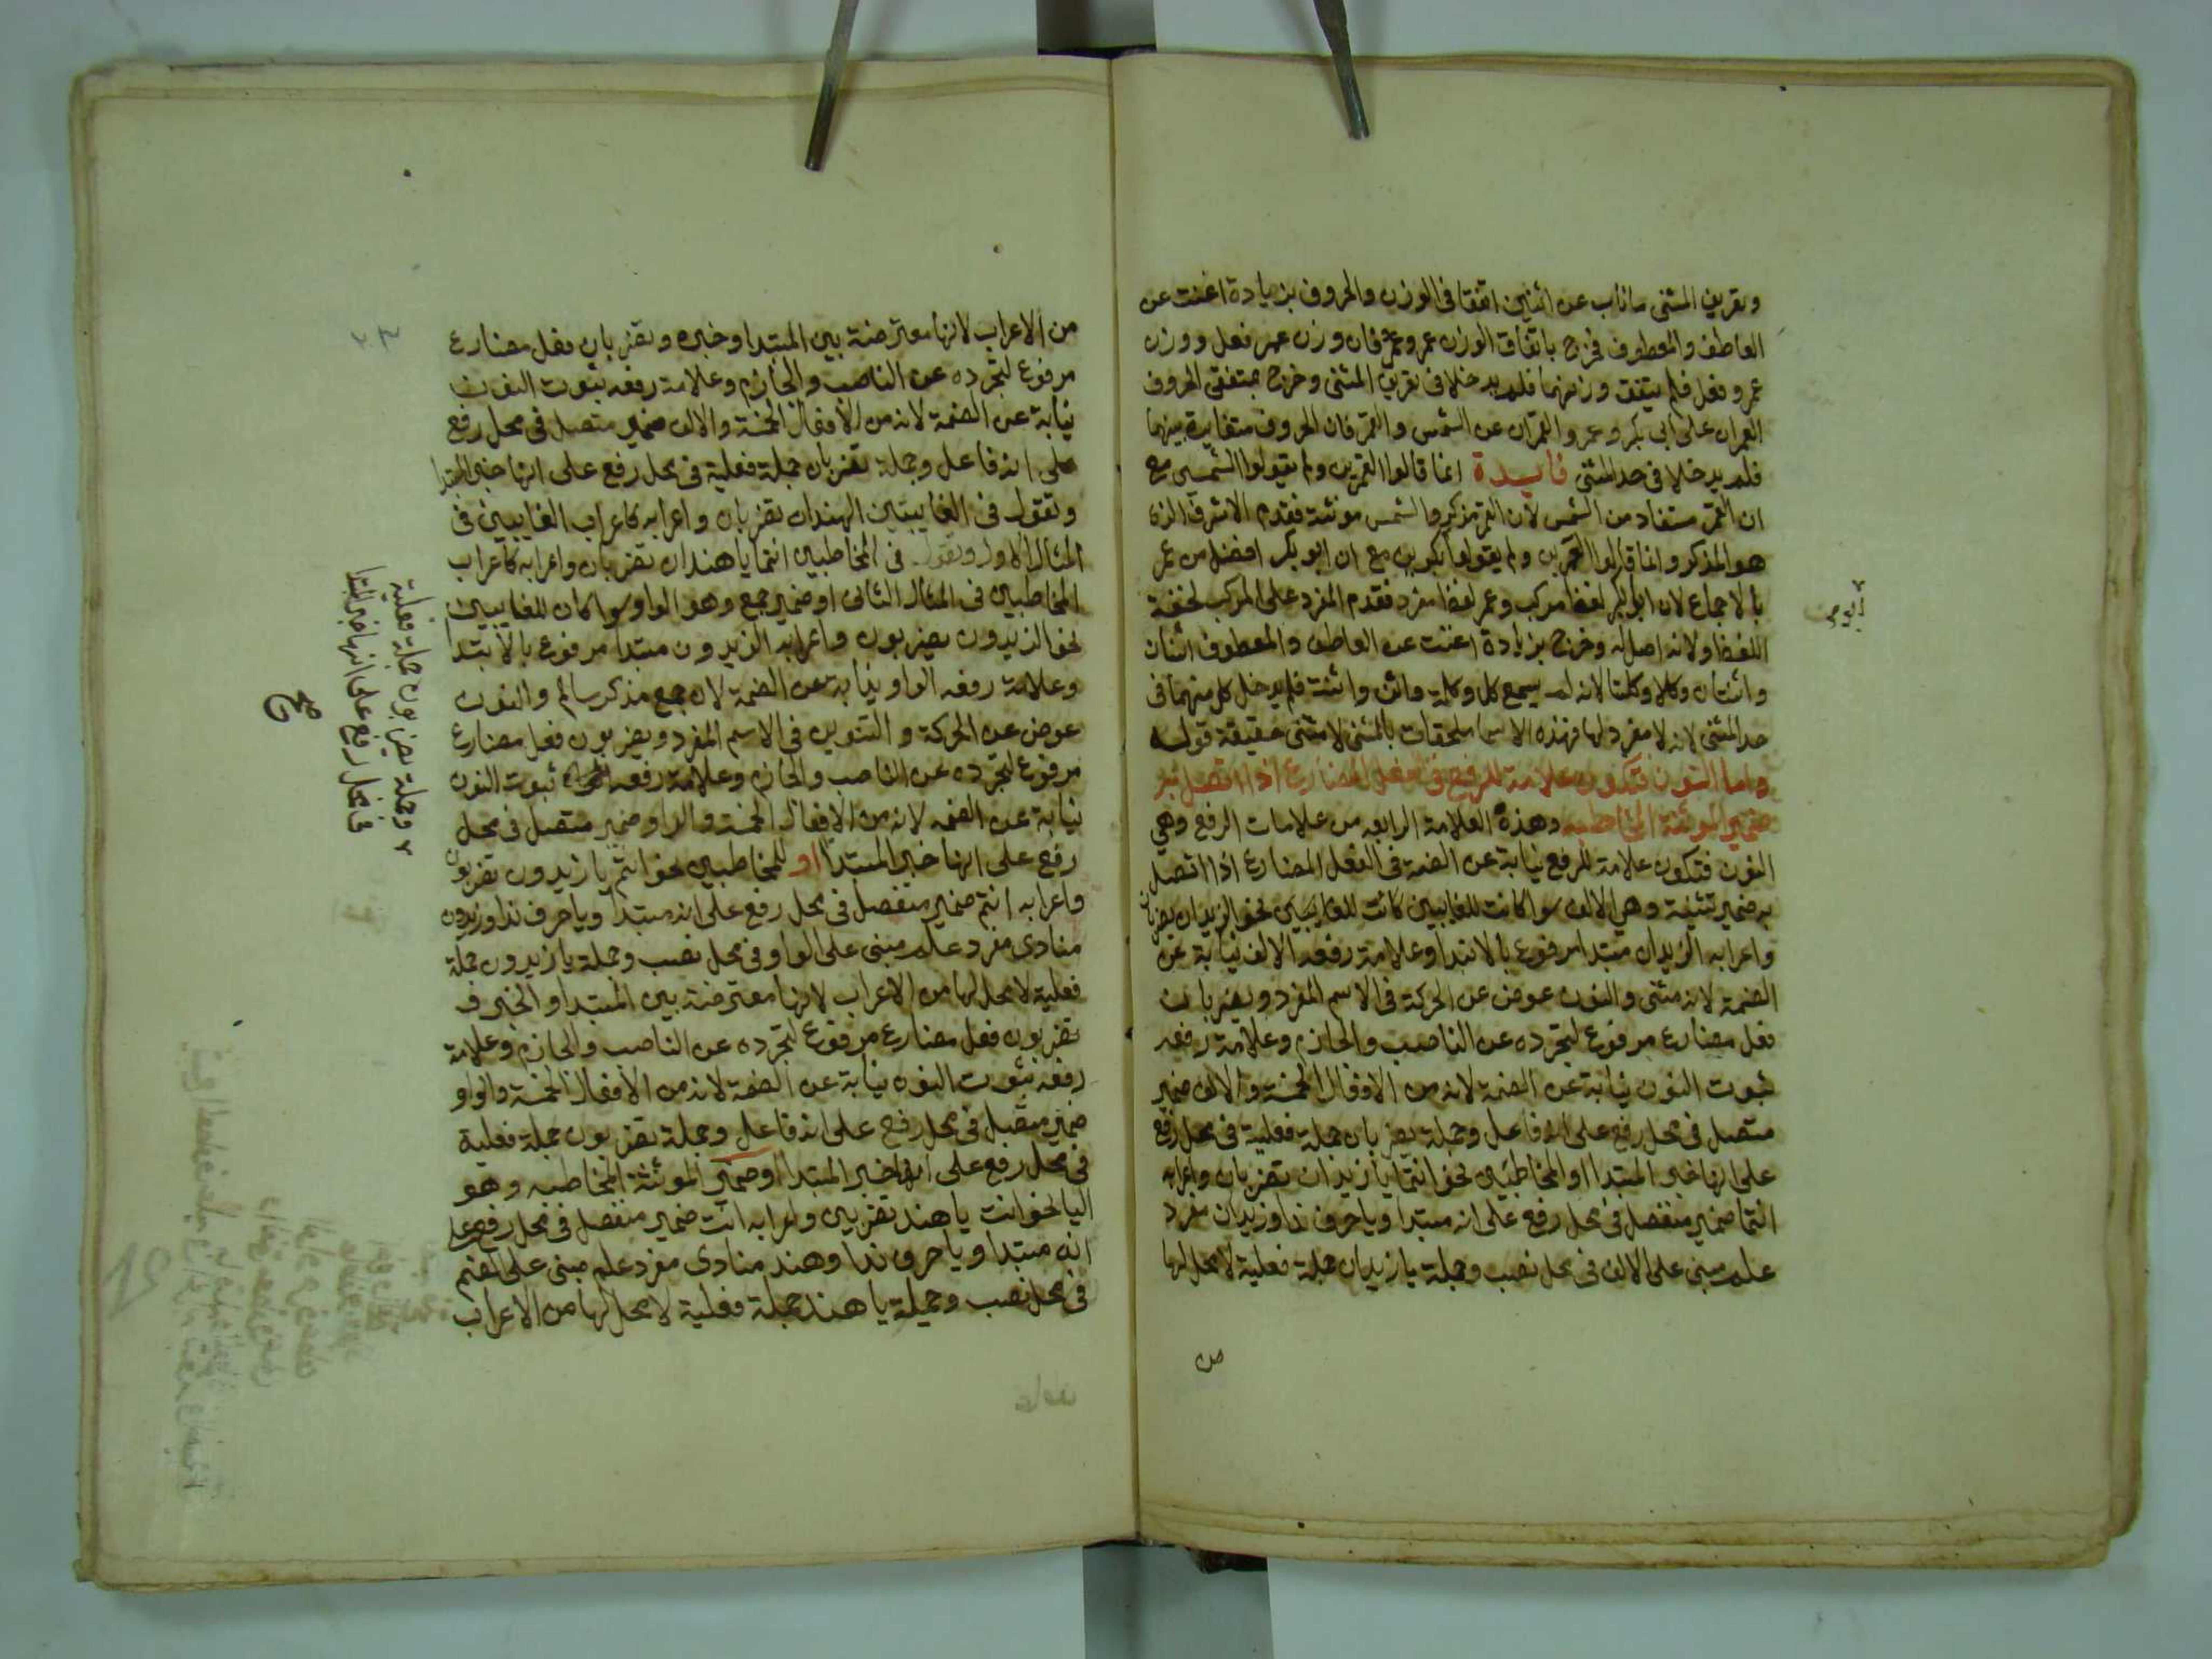 وتعريف المثنى ما ناب عن اثنين اتفقا في الوزن والحروف بزيادة اغنت عن
العاطف والمعطوف فخرج باتفاق الوزن عمر وعمرو فان وزن عمر فعل ووزن
عمرو فعل فلم يتفق وزنهما فلم يدخلا في تعريف المثنى وخرج بمتفقي الحروف
العمران على ابي بكر وعمر والقمران عن الشمس والقمر فان الحروف متغايرة بينهما
فلم يدخلا في حد المثنى فايدة انما قالوا القمرين ولم يقولوا الشمسين مع
ان القمر مستفاد من الشمس لان القمر مذكر والشمس مونثة فقدم الاشرف الذي
هو المذكر وانما قالوا العمرين ولم يقولوا بكرين مع ان ابو بكر افضل من عمر
بالاجماع لان ابو بكر لفظ مركب وعمر لفظ مفرد فقدم المفرد على المركب لخفة
اللفظ ولانه اصل له وخرج بزيادة اغنت عن العاطف والمعطوف اثنان
واثنتان وكلا وكلتا لانه لم يسمع كل وكلة واثن واثنة فلم يدخل كل منهما في
حد المثنى لانه لا مفرد لها فهذه الاسما ملحقات بالمثنى لا مثنى حقيقة قوله
واما النون فتكون علامة للرفع في الفعل المضارع اذا اتصل به
ضمير المونثة المخاطبه وهذه العلامة الرابعه من علامات الرفع وهي
النون فتكون علامة للرفع نيابة عن الضمة في الفعل المضارع اذا اتصل
به ضمير تثنية وهي الالف سوا كانت للغايبين كانت للغايبين نحو الزيدان يضربان
واعرابه الزيدان مبتدا مرفوع بالابتدا وعلامة رفعه الالف نيابة عن
الضمة لانه مثنى والنون عوض عن الحركة في الاسم المفرد ويضربان
فعل مضارع مرفوع لتجرده عن الناصب والجازم وعلامة رفعه
ثبوت النون نيابة عن الضمة لانه من الافعال الخمسة والالف ضمير
متصل في محل رفع على انه فاعل وجملة يضربان جملة فعلية في محل رفع
على انها خبر المبتدا او المخاطبين نحو انتما يا زيدان تضربان واعرابه
انتما ضمير منفصل في محل رفع على انه مبتدا ويا حرف ندا وزيدان مفرد
علم مبني على الالف في محل نصب وجملة يا زيدان جملة فعلية لا محل لها
من
من الاعراب لانها معترضة بين المبتدا وخبره وتضربان فعل مضارع
مرفوع لتجرده عن الناصب والجازم وعلامة رفعه ثبوت النون
نيابة عن الضمة لانه من الافعال الخمسة والالف ضمير متصل في محل رفع
على انه فاعل وجملة تضربان جملة فعلية في محل رفع على انها خبر المبتدا
وتقول في الغايبتين الهندان تضربان واعرابه كاعراب الغايبين في
المثال الاول وتقول في المخاطبين انتما يا هندان تضربان واعرابه كاعراب
المخاطبين في المثال الثاني او ضمير جمع وهو الواو سوا كان للغايبين
نحو الزيدون يضربون واعرابه الزيدون مبتدا مرفوع بالابتدا
وعلامة رفعه الواو نيابة عن الضمة لان جمع مذكر سالم والنون
عوض عن الحركة والتنوين في الاسم المفرد ويضربون فعل مضارع
مرفوع لتجرده عن الناصب والجازم وعلامة رفعه ثبوت النون
نيابة عن الضمه لانه من الافعال الخمسة والواو ضمير متصل في محل
رفع على انها خبر المبتدا او للمخاطبين نحو انتم يا زيدون تضربون
واعرابه انتم ضمير منفصل في محل رفع على انه مبتدا ويا حرف ندا وزيدون
منادى مفرد علم مبني على الواو في محل نصب وجملة يا زيدون جملة
فعلية لا محل لها من الاعراب لانها معترضة بين المبتدا والخبر و
تضربون فعل مضارع مرفوع لتجرده عن الناصب والجازم وعلامة
رفعه ثبوت النون نيابة عن الضمة لانه من الافعال الخمسة والواو
ضمير متصل في محل رفع على انه فاعل وجملة تضربون جملة فعلية
في محل رفع على انها خبر المبتدا او ضمير المونثة المخاطبه وهو
اليا نحو انت يا هند تضربين واعرابه انت ضمير منفصل في محل رفع على
انه مبتدا ويا حرف ندا وهند منادى مفرد علم مبني على الضم
في محل نصب وجملة يا هند جملة فعلية لا محل لها من الاعراب
وجملة يضربون جملة فعلية
في محل رفع على انها خبر المبتدا
صح